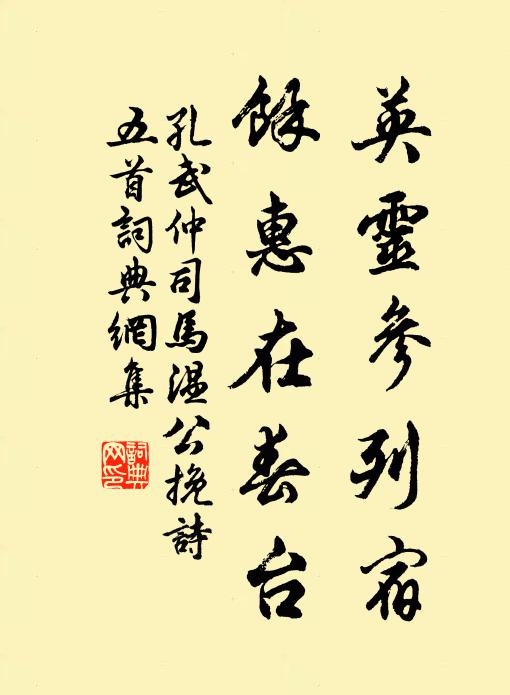 英靈參列宿
餘惠在春台
孔武仲司馬溫公挽詩
五首詞典網集
詞典
网印